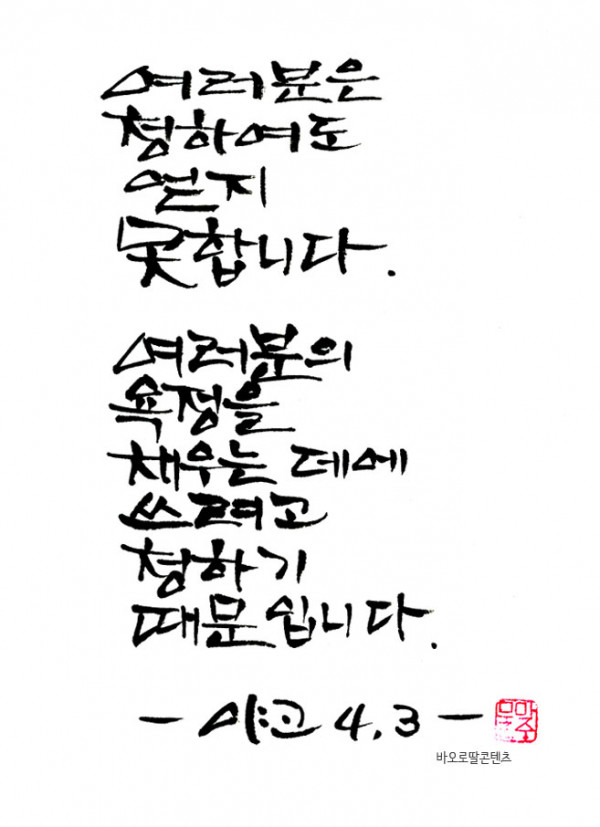 여러분은
청하여도
얻지
못합니다.
여러분의
욕정을
채우는 데에
쓰려고
청하기
때문입니다.
- 야고 4,3 -
바오로딸콘텐츠